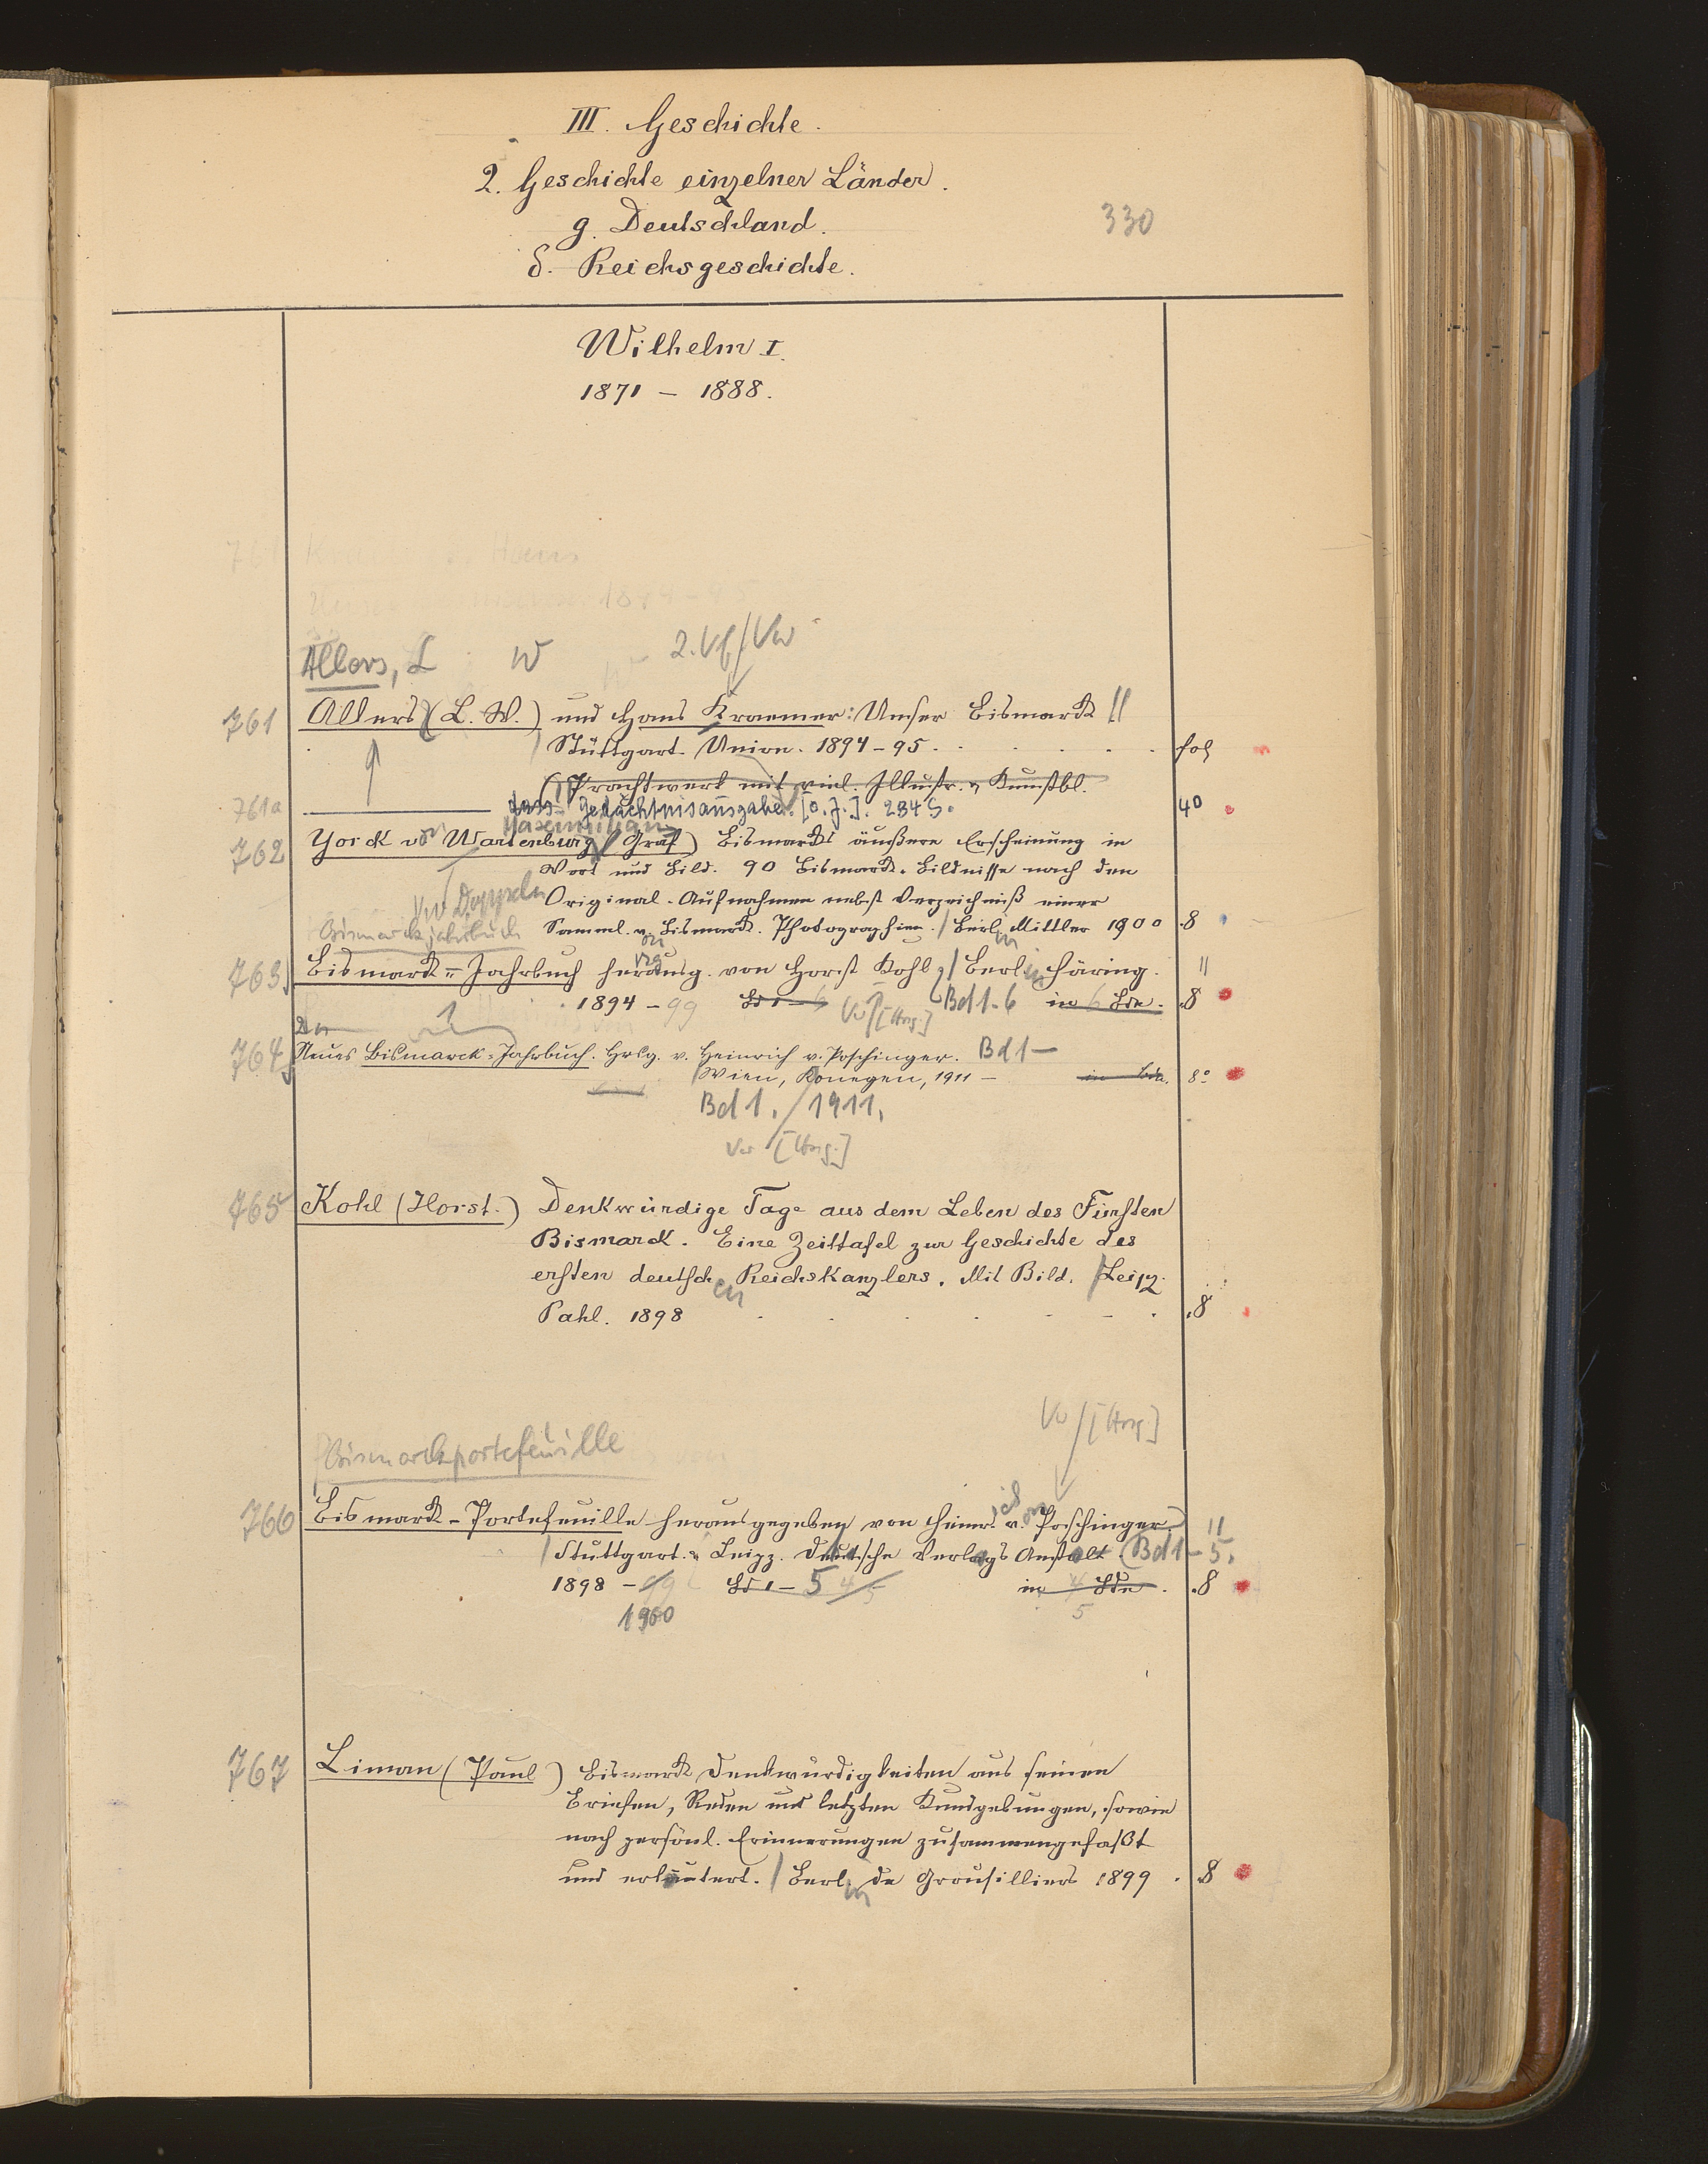 III. Geschichte.
2. Geschichte einzelner Länder.
g. Deutschland.
330
δ. Reichsgeschichte.
Wilhelm I.
1871 – 1888.
Allers, L W 2. Vf/Vw
761 Allers (L. W.) und Hans Kraemer: Unser Bismarck
Stuttgart. Union. 1894–95. fol
(Prachtwerk mit viel. Illustr. u Kunstbl.
761a dass. Gedächtnisausgabe. [o. J.]. 284 S. 4°
Maximilian
762 Yorck von Wartenburg (Graf) Bismarcks äußere Erscheinung in
Wort und Bild. 90 Bismarck-Bildnisse nach den
Vw Doppeln Original-Aufnahmen nebst Verzeichniß einer
Bismarckjahrbuch Samml. v. Bismarck-Photographien. / Berlin Mittler 1900 8
763 Bismarck-Jahrbuch herausg. von Horst Kohl / Berlin Häring.
1894–99 Bd 1–6 Vw [Hrsg.] Bd 1-6 in 6 Bdn. 8
764 Neues Bismarck-Jahrbuch. Hrsg. v. Heinrich v. Poschinger. Bd 1–
/ Wien, Konegen, 1911 – in Bdn. 8°
Bd 1. / 1911.
Vw [Hrsg.]
765 Kohl (Horst.) Denkwürdige Tage aus dem Leben des Fürsten
Bismarck. Eine Zeittafel zur Geschichte des
ersten deutschen Reichskanzlers. Mit Bild. / Leipz.
Pahl. 1898 8
Vw / [Hrsg]
Bismarckportefeuille
766 Bismarck-Portefeuille herausgegeben von Heinrich von Poschinger.
/ Stuttgart. u Leipz. Deutsche Verlags Anstalt (Bd 1–5.
1898 – 99 Bd 1–5 4 5 in 4 Bdn. 8
1900 5
767 Liman (Paul) Bismarck Denkwürdigkeiten aus seinen
Briefen, Reden und letzten Kundgebungen, sowie
nach persönl. Erinnerungen zusammengefaßt
und erläutert. / Berlin de Grousilliers 1899. 8